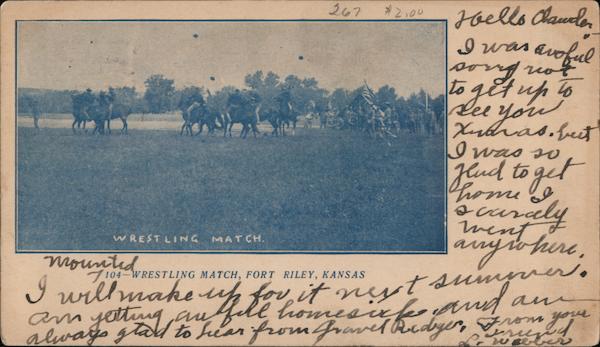 267 $2.00
Hello Claude.
I was awful
sorry not
to get up to
see you
Xmas. but
I was so
glad to get
home I
scarcely
went
anywhere.
WRESTLING MATCH.
Mounted
104—WRESTLING MATCH, FORT RILEY, KANSAS
I will make up for it next summer.
Am getting awfull homesick, and am
always glad to hear from Gravel Ridge. From your
friend
L. Weber